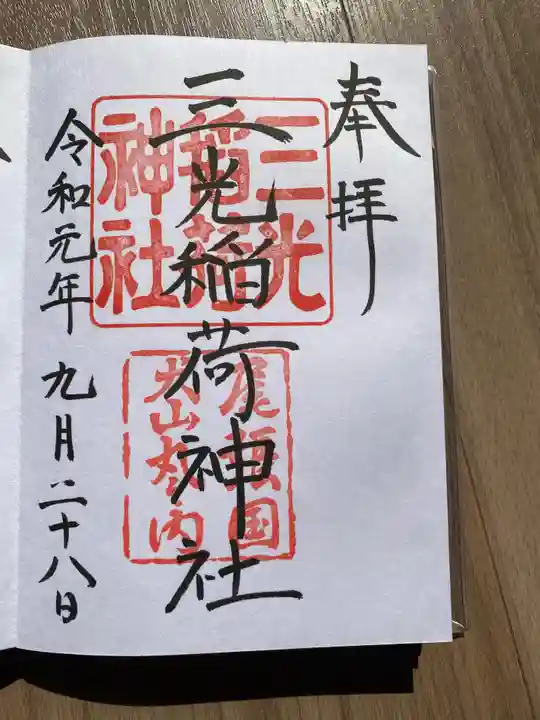 奉拝
三光稲荷神社
三光
稲荷
神社
尾張国
犬山城内
令和元年 九月二十八日